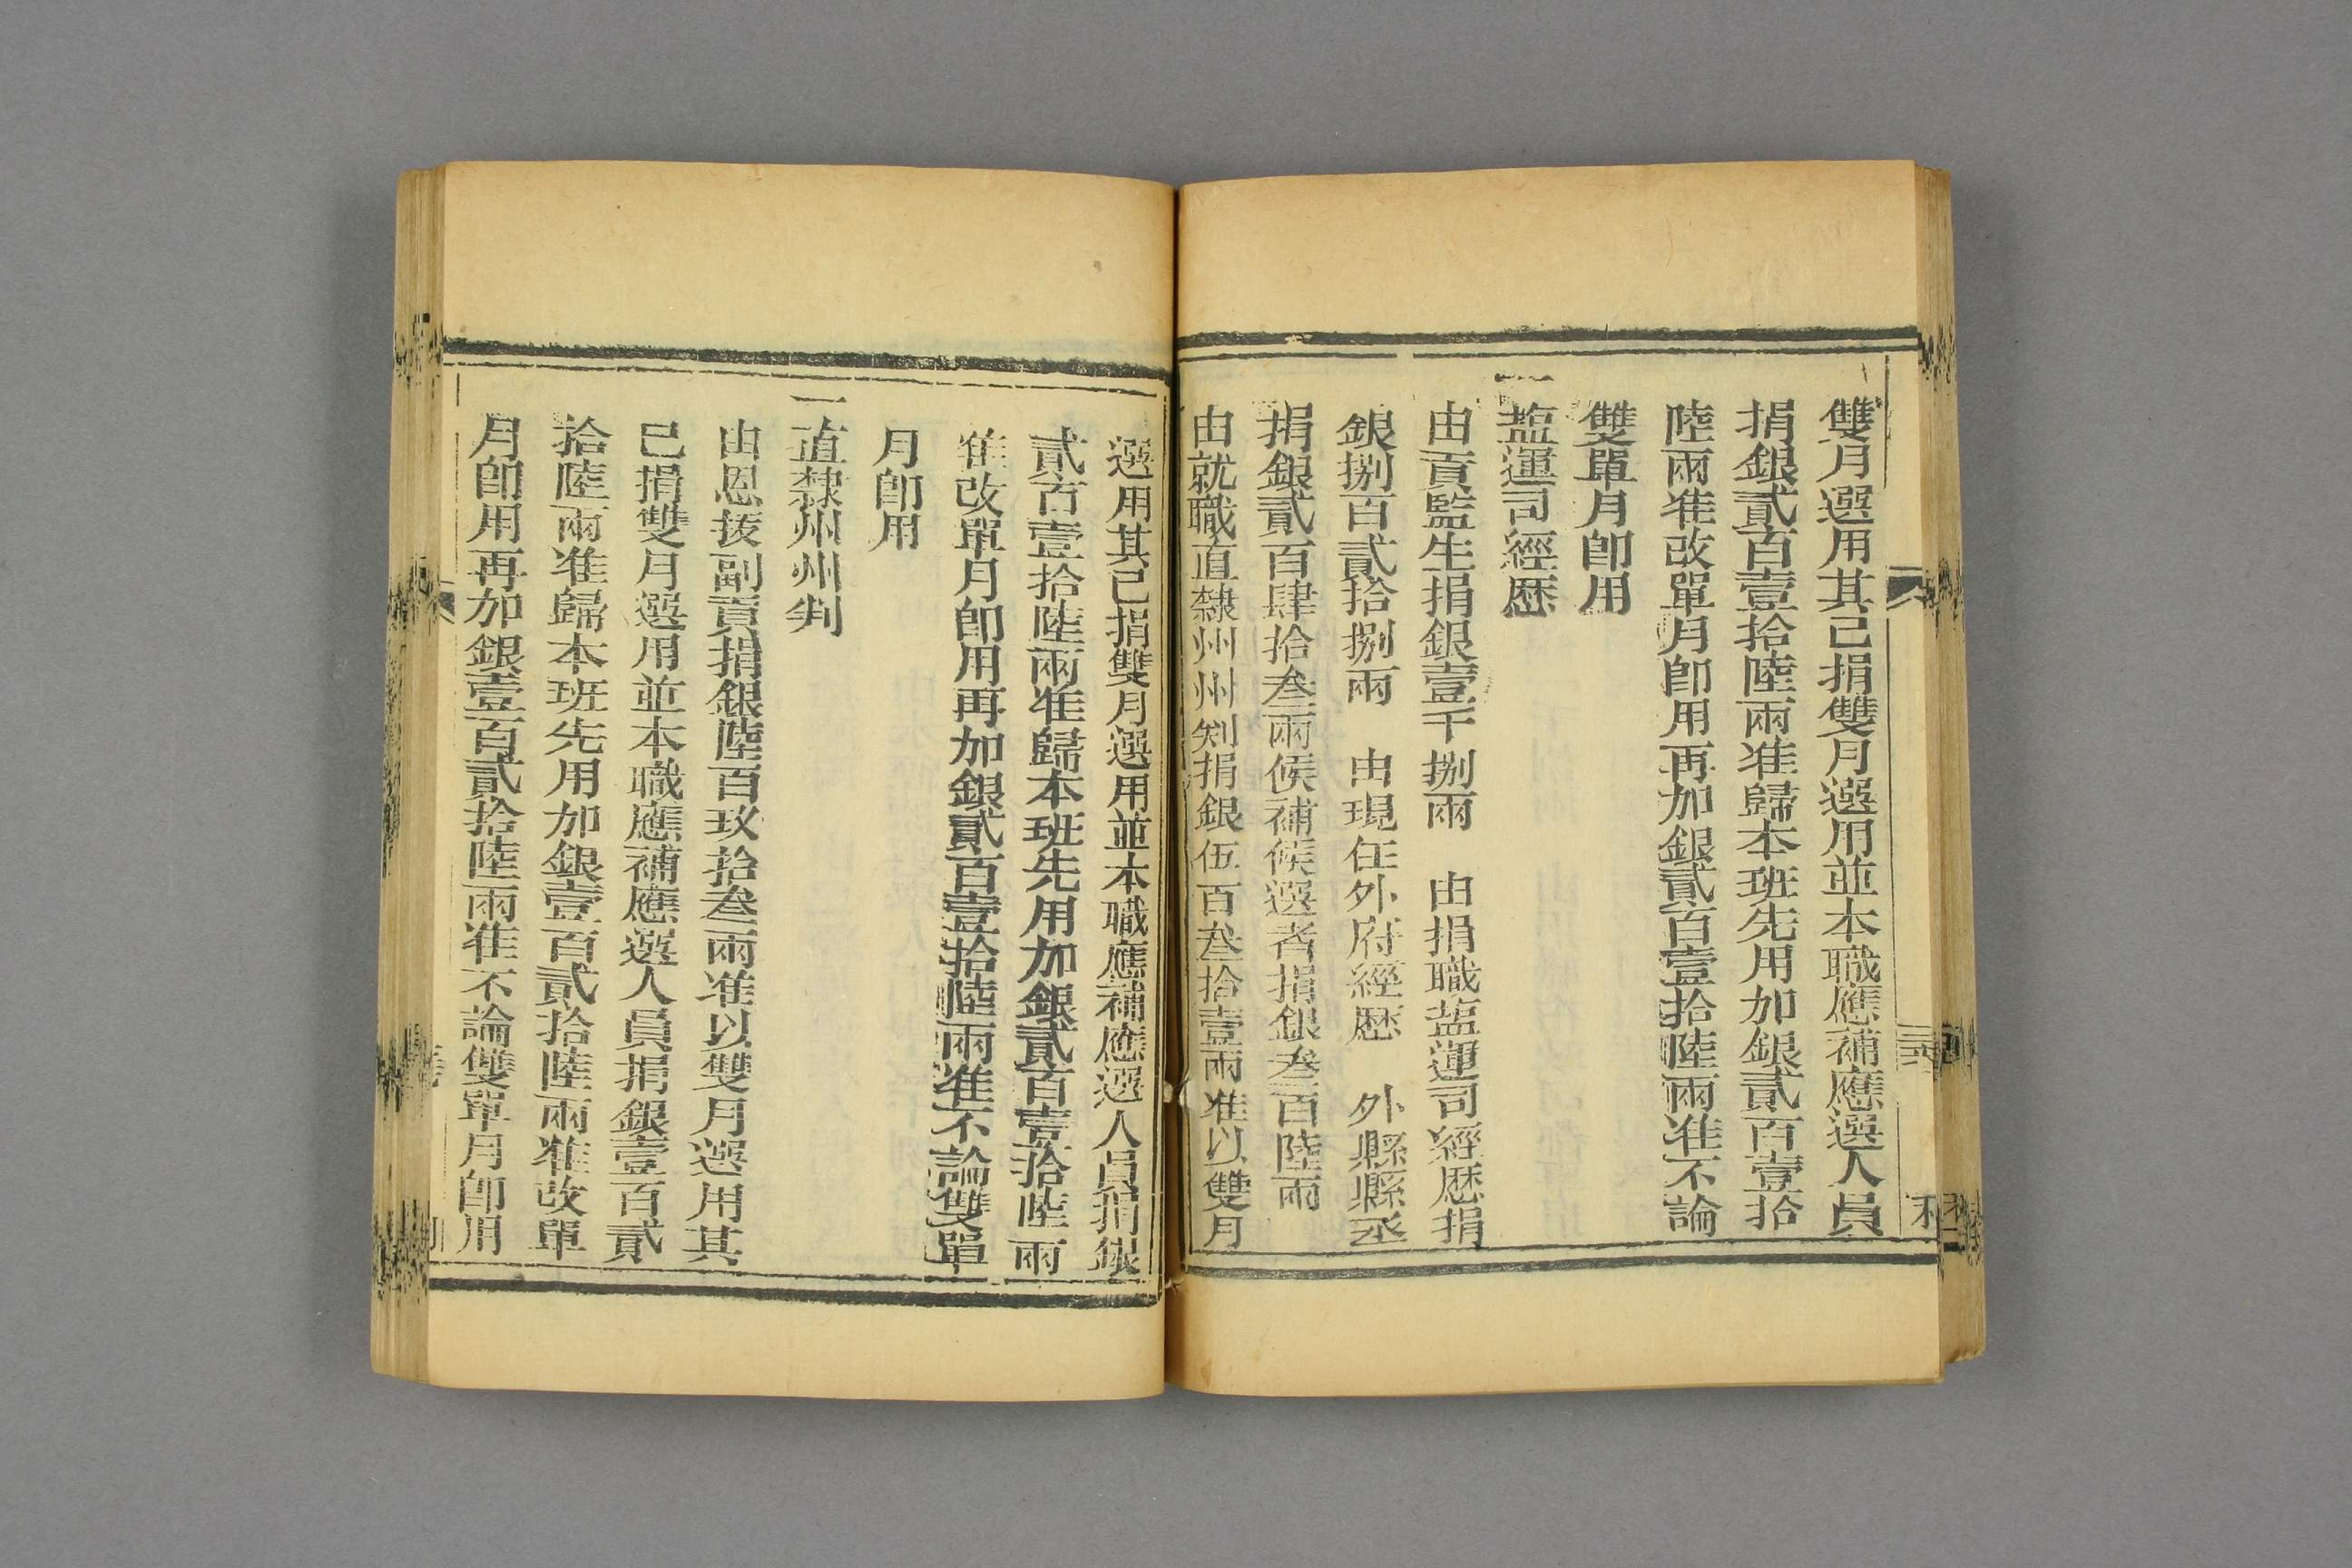 雙月選用其已捐雙月選用並本職應補應選人員
捐銀貳百壹拾陸兩准歸本班先用加銀貳百壹拾
陸兩准改單月卽用再加銀貳百壹拾陸兩准不論
雙單月卽用
一塩運司經歷
由貢監生捐銀壹千捌兩　由捐職塩運司經歷捐
銀捌百貳拾捌兩　由現任外府經歷　外縣縣丞
捐銀貳百肆拾叁兩候補候選者捐銀叁百陸兩
由就職直隸州州判捐銀伍百叁拾壹兩准以雙月
選用其已捐雙月選用並本職應補應選人員捐銀
貳百壹拾陸兩准歸本班先用加銀貳百壹拾陸兩
准改單月卽用再加銀貳百壹拾陸兩准不論雙單
月卽用
一直隸州州判
由恩拔副貢捐銀陸百玖拾叁兩准以雙月選用其
已捐雙月選用並本職應補應選人員捐銀壹百貳
拾陸兩准歸本班先用加銀壹百貳拾陸兩准改單
月卽用再加銀壹百貳拾陸兩准不論雙單月卽用